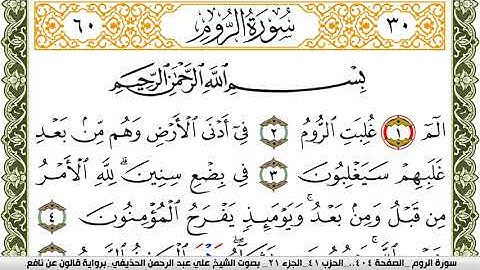 ٣٠ سُورَةُ الرُّومِ ٦٠
بِسْمِ اللَّهِ الرَّحْمَٰنِ الرَّحِيمِ
الٓمٓ ١ غُلِبَتِ ٱلرُّومُ ٢ فِىٓ أَدْنَى ٱلْأَرْضِ وَهُم مِّنۢ بَعْدِ
غَلَبِهِمْ سَيَغْلِبُونَ ٣ فِى بِضْعِ سِنِينَۗ لِلَّهِ ٱلْأَمْرُ
مِن قَبْلُ وَمِنۢ بَعْدُۚ وَيَوْمَئِذٍ يَفْرَحُ ٱلْمُؤْمِنُونَ ٤
سورة الروم _الصفحة ٤٠٤. .الحزب ٤١. الجزء ٢١ _بصوت الشيخ علي عبد الرحمن الحذيفي_برواية قالون عن نافع